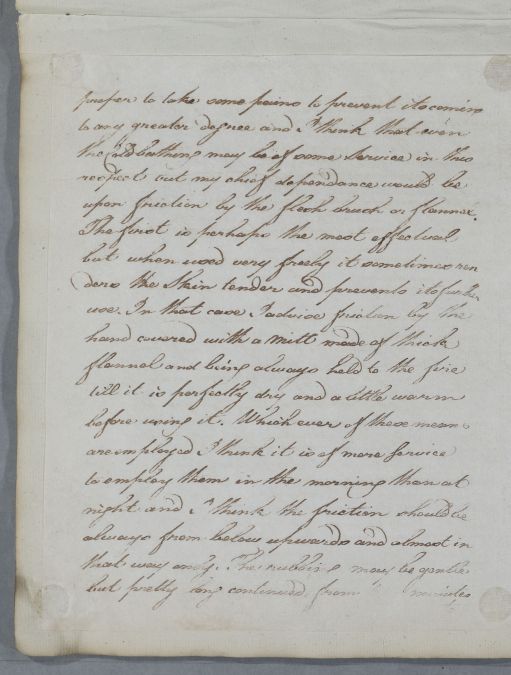 proper to take some pains to prevent its coming
to any greater degree and I think that even
the cold bathing may be of some Service in this
respect but my chief dependance would be
upon friction by the flesh brush or flannel.
The first is perhaps the most effectual
but when used very freely it sometimes ren
ders the Skin tender and prevents its further
use. In that case I advise friction by the
hand covered with a mitt made of thick
flannel and being always held to the fire
till it is perfectly dry and a little warm
before using it. Which ever of these means
are employed I think it is of more Service
to employ them in the morning than at
night and I think the friction should be
always from below upwards and almost in
that way only. The rubbing may be gentle
but pretty long continued, from minutes